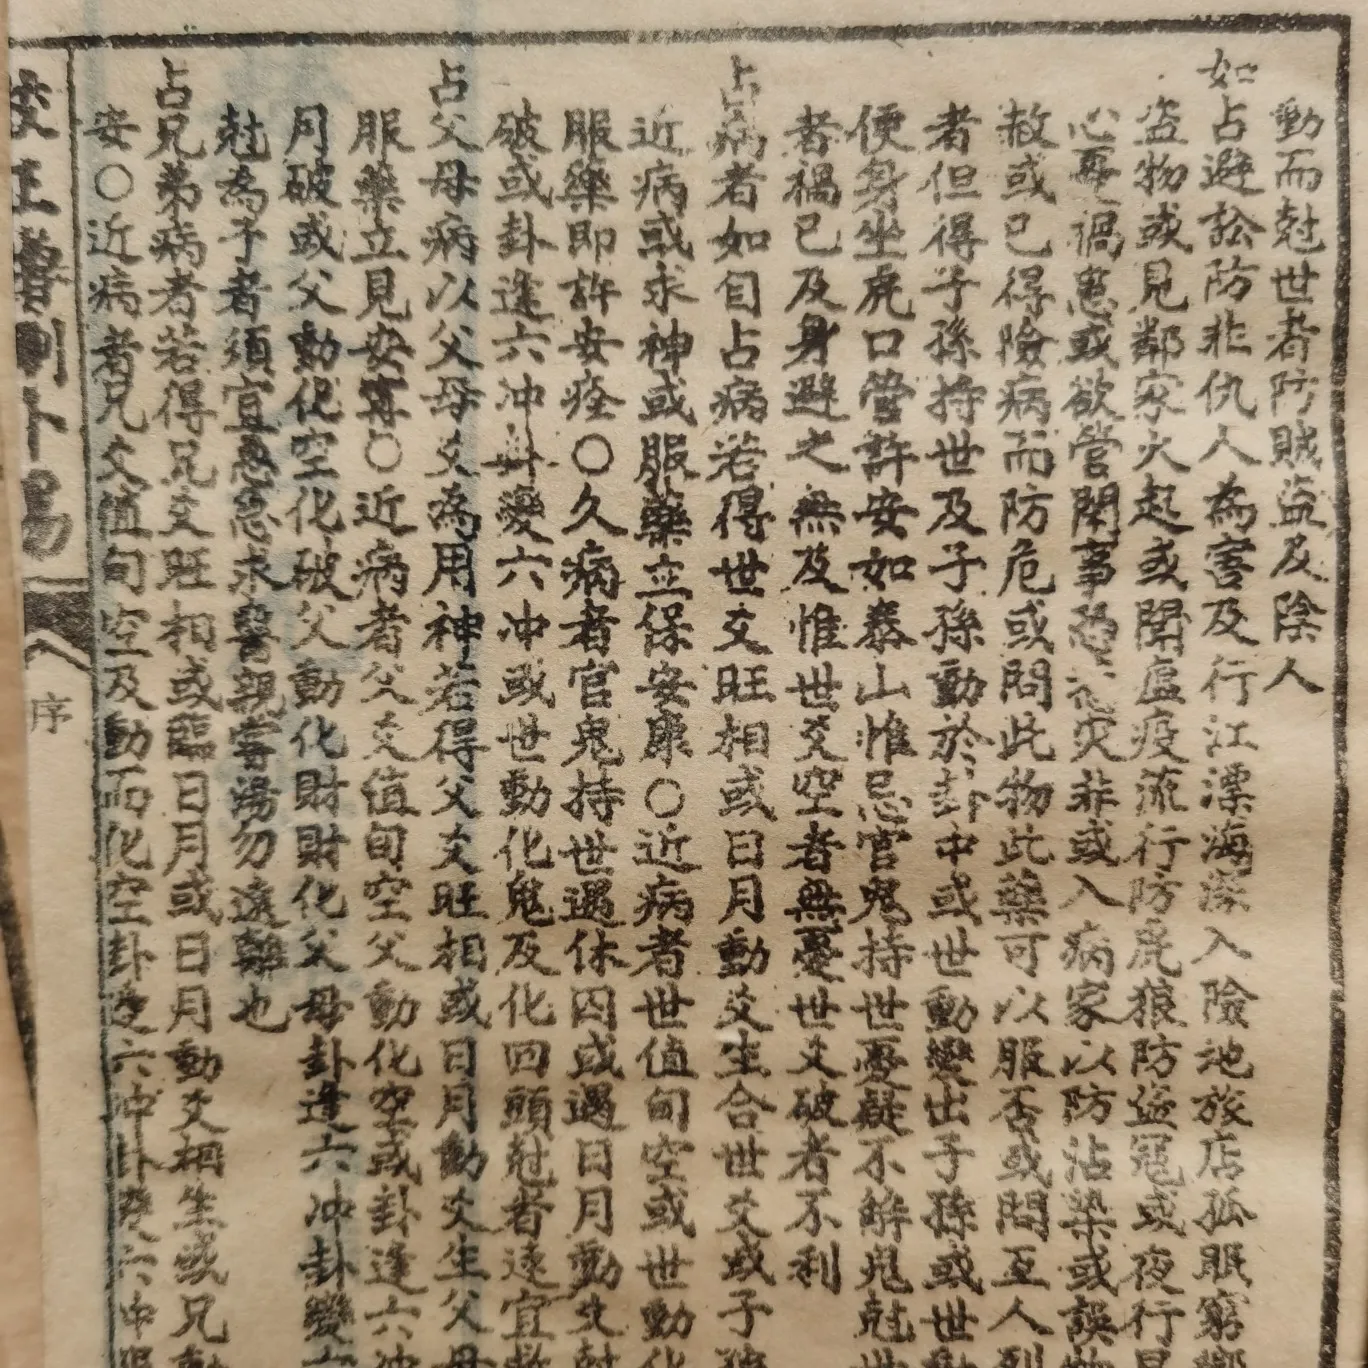 動而尅世者防賊盜及陰人
如占避訟防非仇人為害及行江漂海深入險地旅店孤眠窮鄉
盜物或見鄰家火起或聞瘟疫流行防虎狼防盜冦或夜行
心畏禍患或欲管閒事恐惹灾非或入病家以防沾染或誤
赦或已得險病而防危或問此物此藥可以服否或問互人列
者但得子孫持世及子孫動於卦中或世動變出子孫或世動
便身坐虎口管許安如泰山惟忌官鬼持世憂疑不解鬼尅世
者禍已及身避之無及惟世爻空者無憂世爻破者不利
占病者如自占病若得世爻旺相或日月動爻生合世爻或子孫
近病或求神或服藥立保安康〇近病者世值旬空或世動化
服藥即許安痊〇久病者官鬼持世遇休囚或遇日月動爻尅
破或卦逢六冲卦變六冲或世動化鬼及化回頭尅者速宜救
占父母病以父母爻為用神若得父爻旺相或日月動爻生父母
服藥立見安寧〇近病者父爻值旬空父動化空或卦逢六冲
月破或父動化空化破父動化財財化父母卦逢六冲卦變六
尅為子者須宜急急求醫親嘗湯勿遠離也
占兄弟病者若得兄爻旺相或臨日月或日月動爻相生或兄動
安〇近病者兄爻值旬空及動而化空卦逢六冲卦變六冲服
校正增刪卜易
序